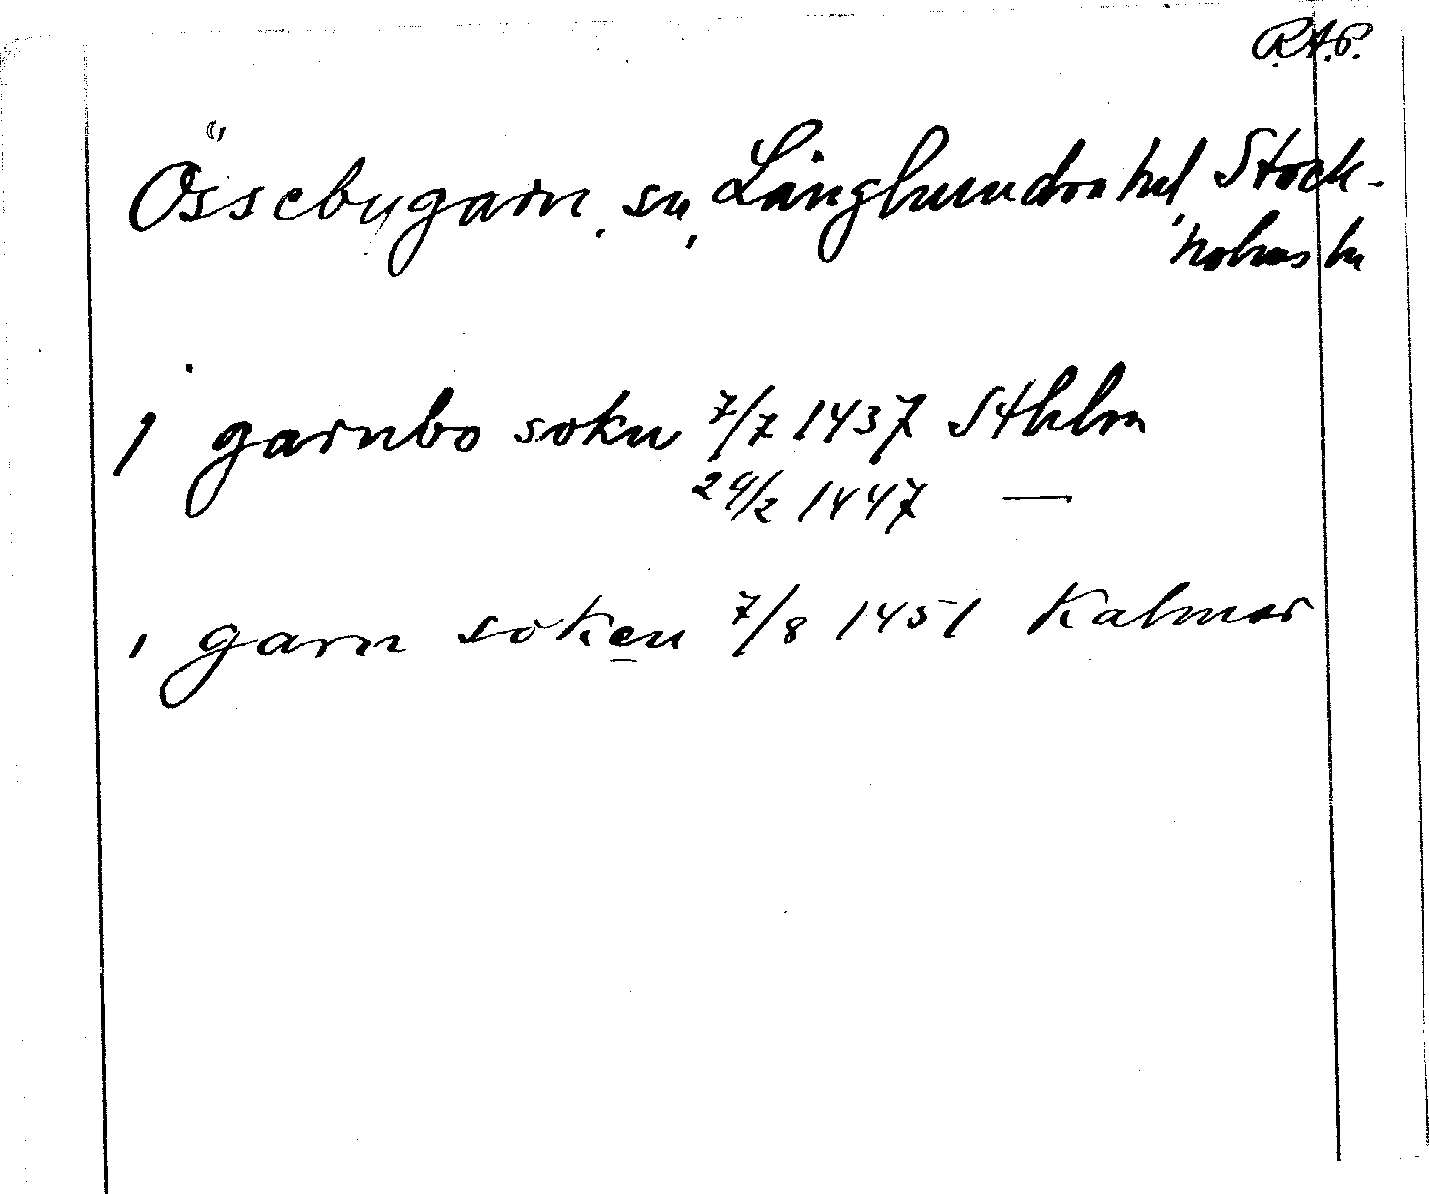 R.A.P.
Össebygarn, sn, Långhundra hd, Stock-
holms ln
I garnbo sokn 7/7 1437 Sthlm
24/2 1447 —
I garn soken 7/8 1451 Kalmar